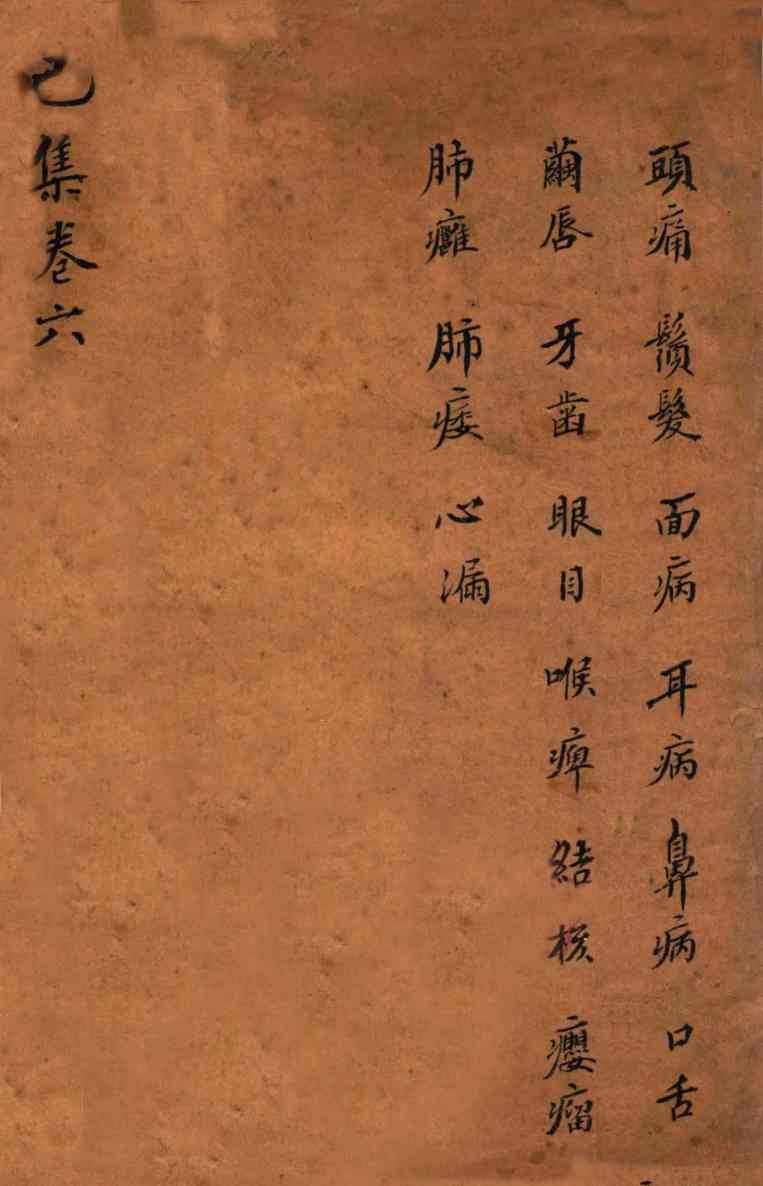 頭痛 鬚髮 面病 耳病 鼻病 口舌
繭唇 牙齒 眼目 喉痺 結核 癭瘤
肺癰 肺痿 心漏
巳集卷六